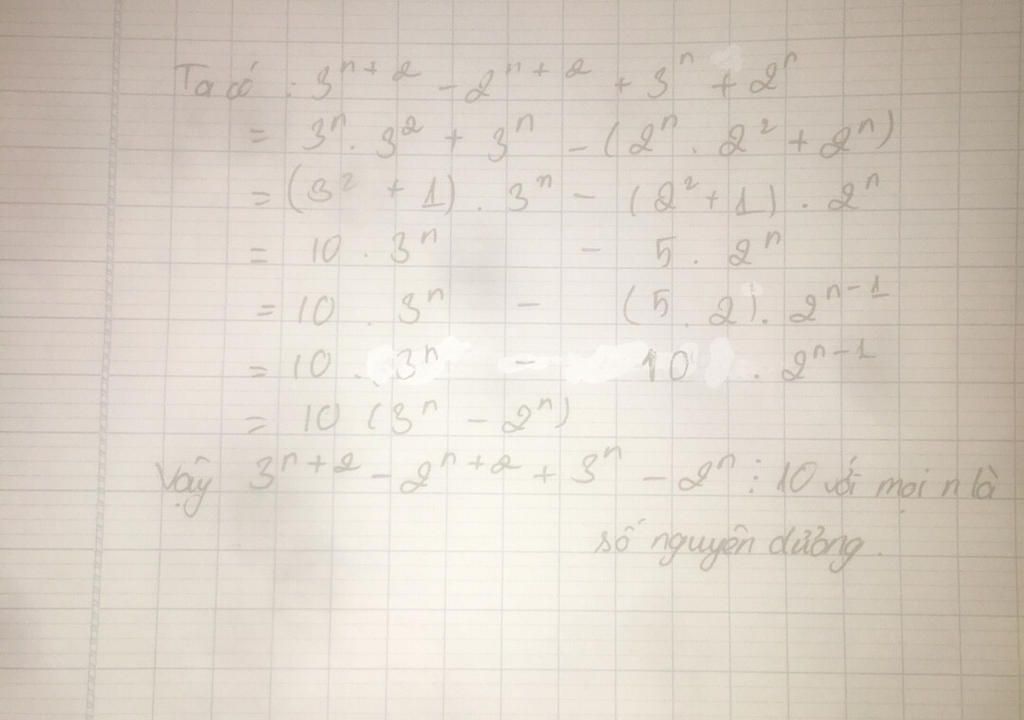 Ta có : 3ⁿ⁺² - 2ⁿ⁺² + 3ⁿ + 2ⁿ
= 3ⁿ . 3² + 3ⁿ - (2ⁿ . 2² + 2ⁿ)
= (3² + 1) . 3ⁿ - (2² + 1) . 2ⁿ
= 10 . 3ⁿ - 5 . 2ⁿ
= 10 . 3ⁿ - (5 . 2) . 2ⁿ⁻¹
= 10 . 3ⁿ - 10 . 2ⁿ⁻¹
= 10 (3ⁿ - 2ⁿ)
Vậy 3ⁿ⁺² - 2ⁿ⁺² + 3ⁿ - 2ⁿ ⋮ 10 với mọi n là
số nguyên dương.